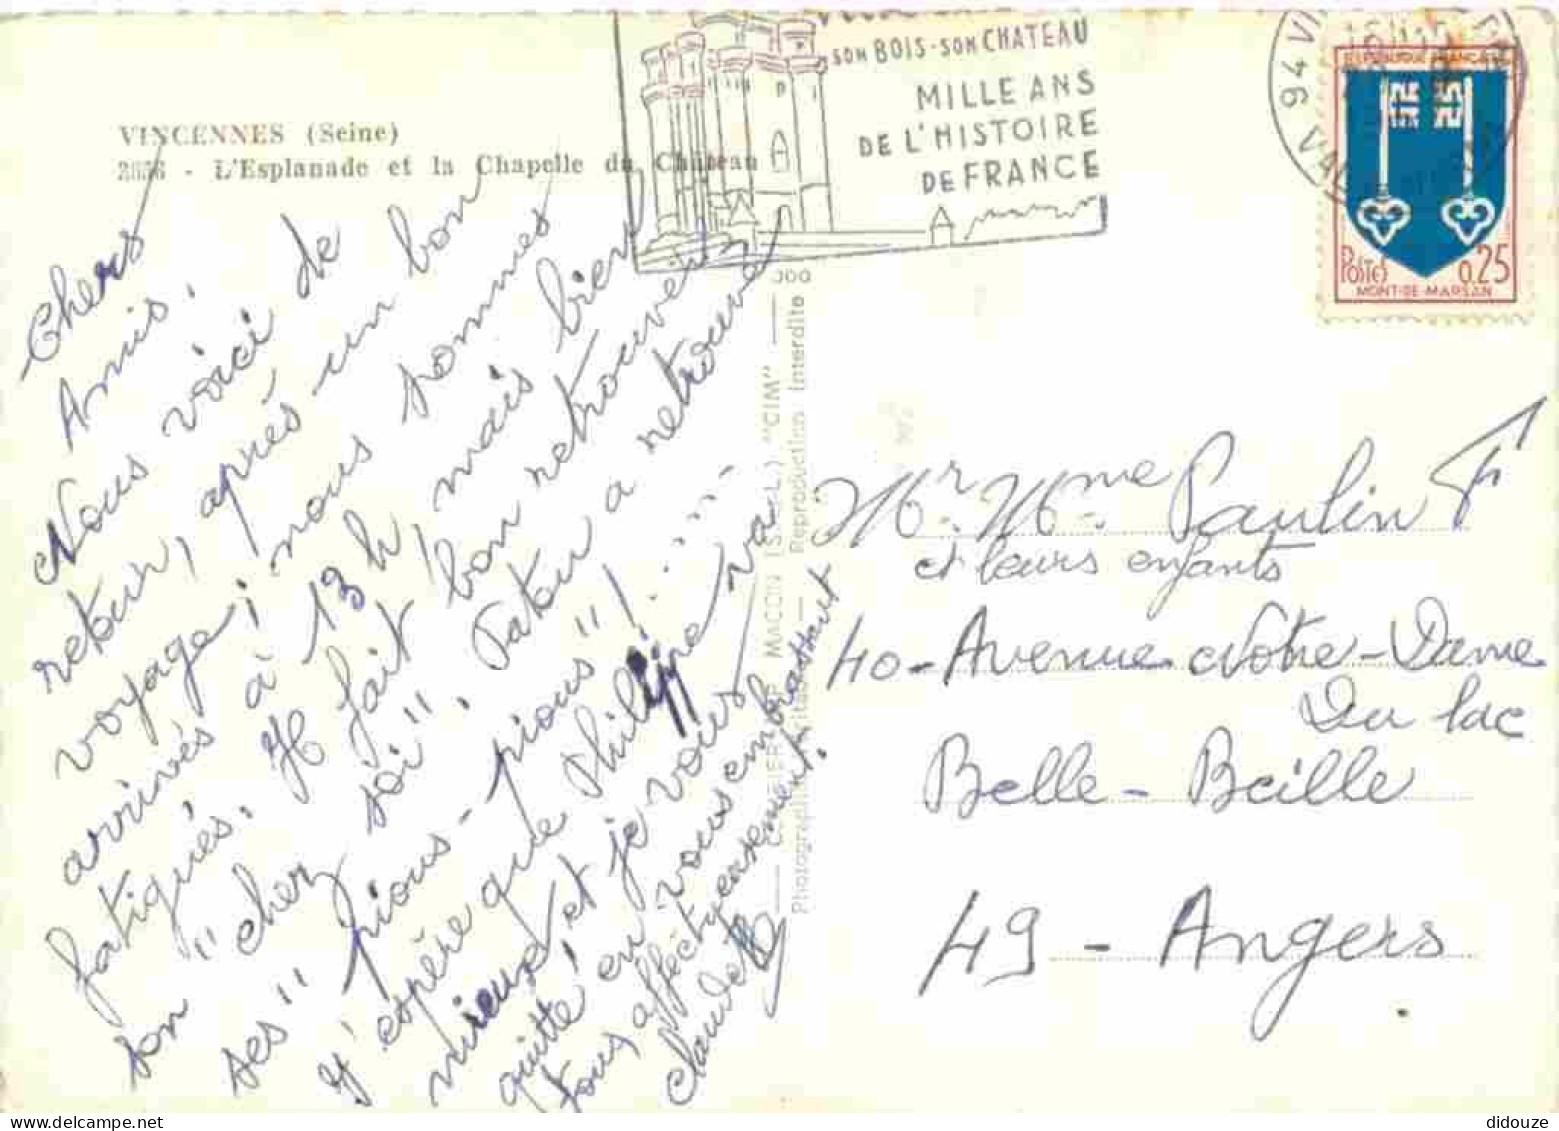 SON BOIS - SON CHATEAU
MILLE ANS
DE L'HISTOIRE
DE FRANCE
REPUBLIQUE FRANÇAISE
POSTES 0.25
MONT-DE-MARSAN
VINCENNES (Seine)
2656 - L'Esplanade et la Chapelle du Château
Chers
Amis.
Nous voici de
retour, après un bon
voyage; nous sommes
arrivés à 13 h, mais bien
fatigués. Il fait bon retrouver
son "chez soi". Tatou a retrouvé
ses "pious-pious"!.....
J'espère que Philippe va
mieux et je vous
quitte en vous embrassant
tous affectueusement.
Claudette
COMBIER IMP. MACON (S.-L.) "CIM"
Reproduction Interdite
Mr. Mme Paulin F
et leurs enfants
40 - Avenue Notre-Dame
Du Lac
Belle-Beille
49 - Angers.
didouze